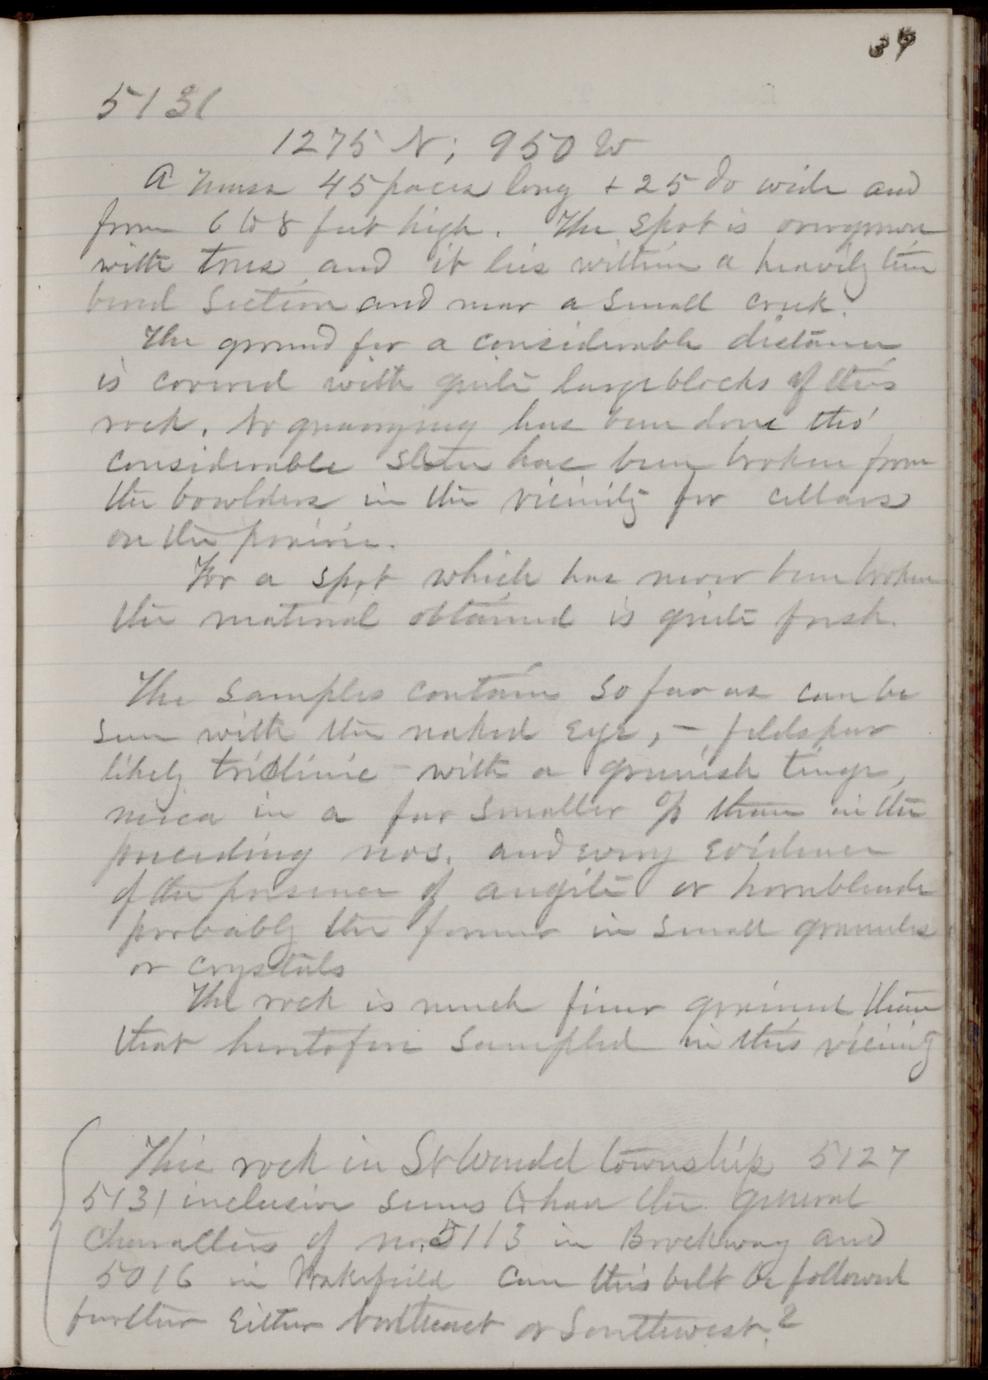 39
5131
1275 N; 950 W
A mass 45 paces long + 25 do wide and
from 6 to 8 feet high. The spot is overgrown
with trees and it lies within a heavily tim
bered section and near a small creek.
The ground for a considerable distance
is covered with quite large blocks of this
rock. No quarrying has been done tho'
considerable stone has been broken from
the bowlders in the vicinity for cellars
on the prairie.
For a spot which has never been broken
the material obtained is quite fresh.
The samples contain so far as can be
seen with the naked eye, – feldspar
likely triclinic – with a greenish tinge,
mica in a far smaller % than in the
preceding nos. and every evidence
of the presence of augite or hornblende
probably the former in small granules
or crystals
The rock is much finer grained than
that heretofore sampled in this vicinity
This rock in St Wendel township 5127
5131 inclusive seems to have the general
characters of no. 5113 in Brockway and
5016 in Wakefield Can this belt be followed
further either Northeast or Southwest?